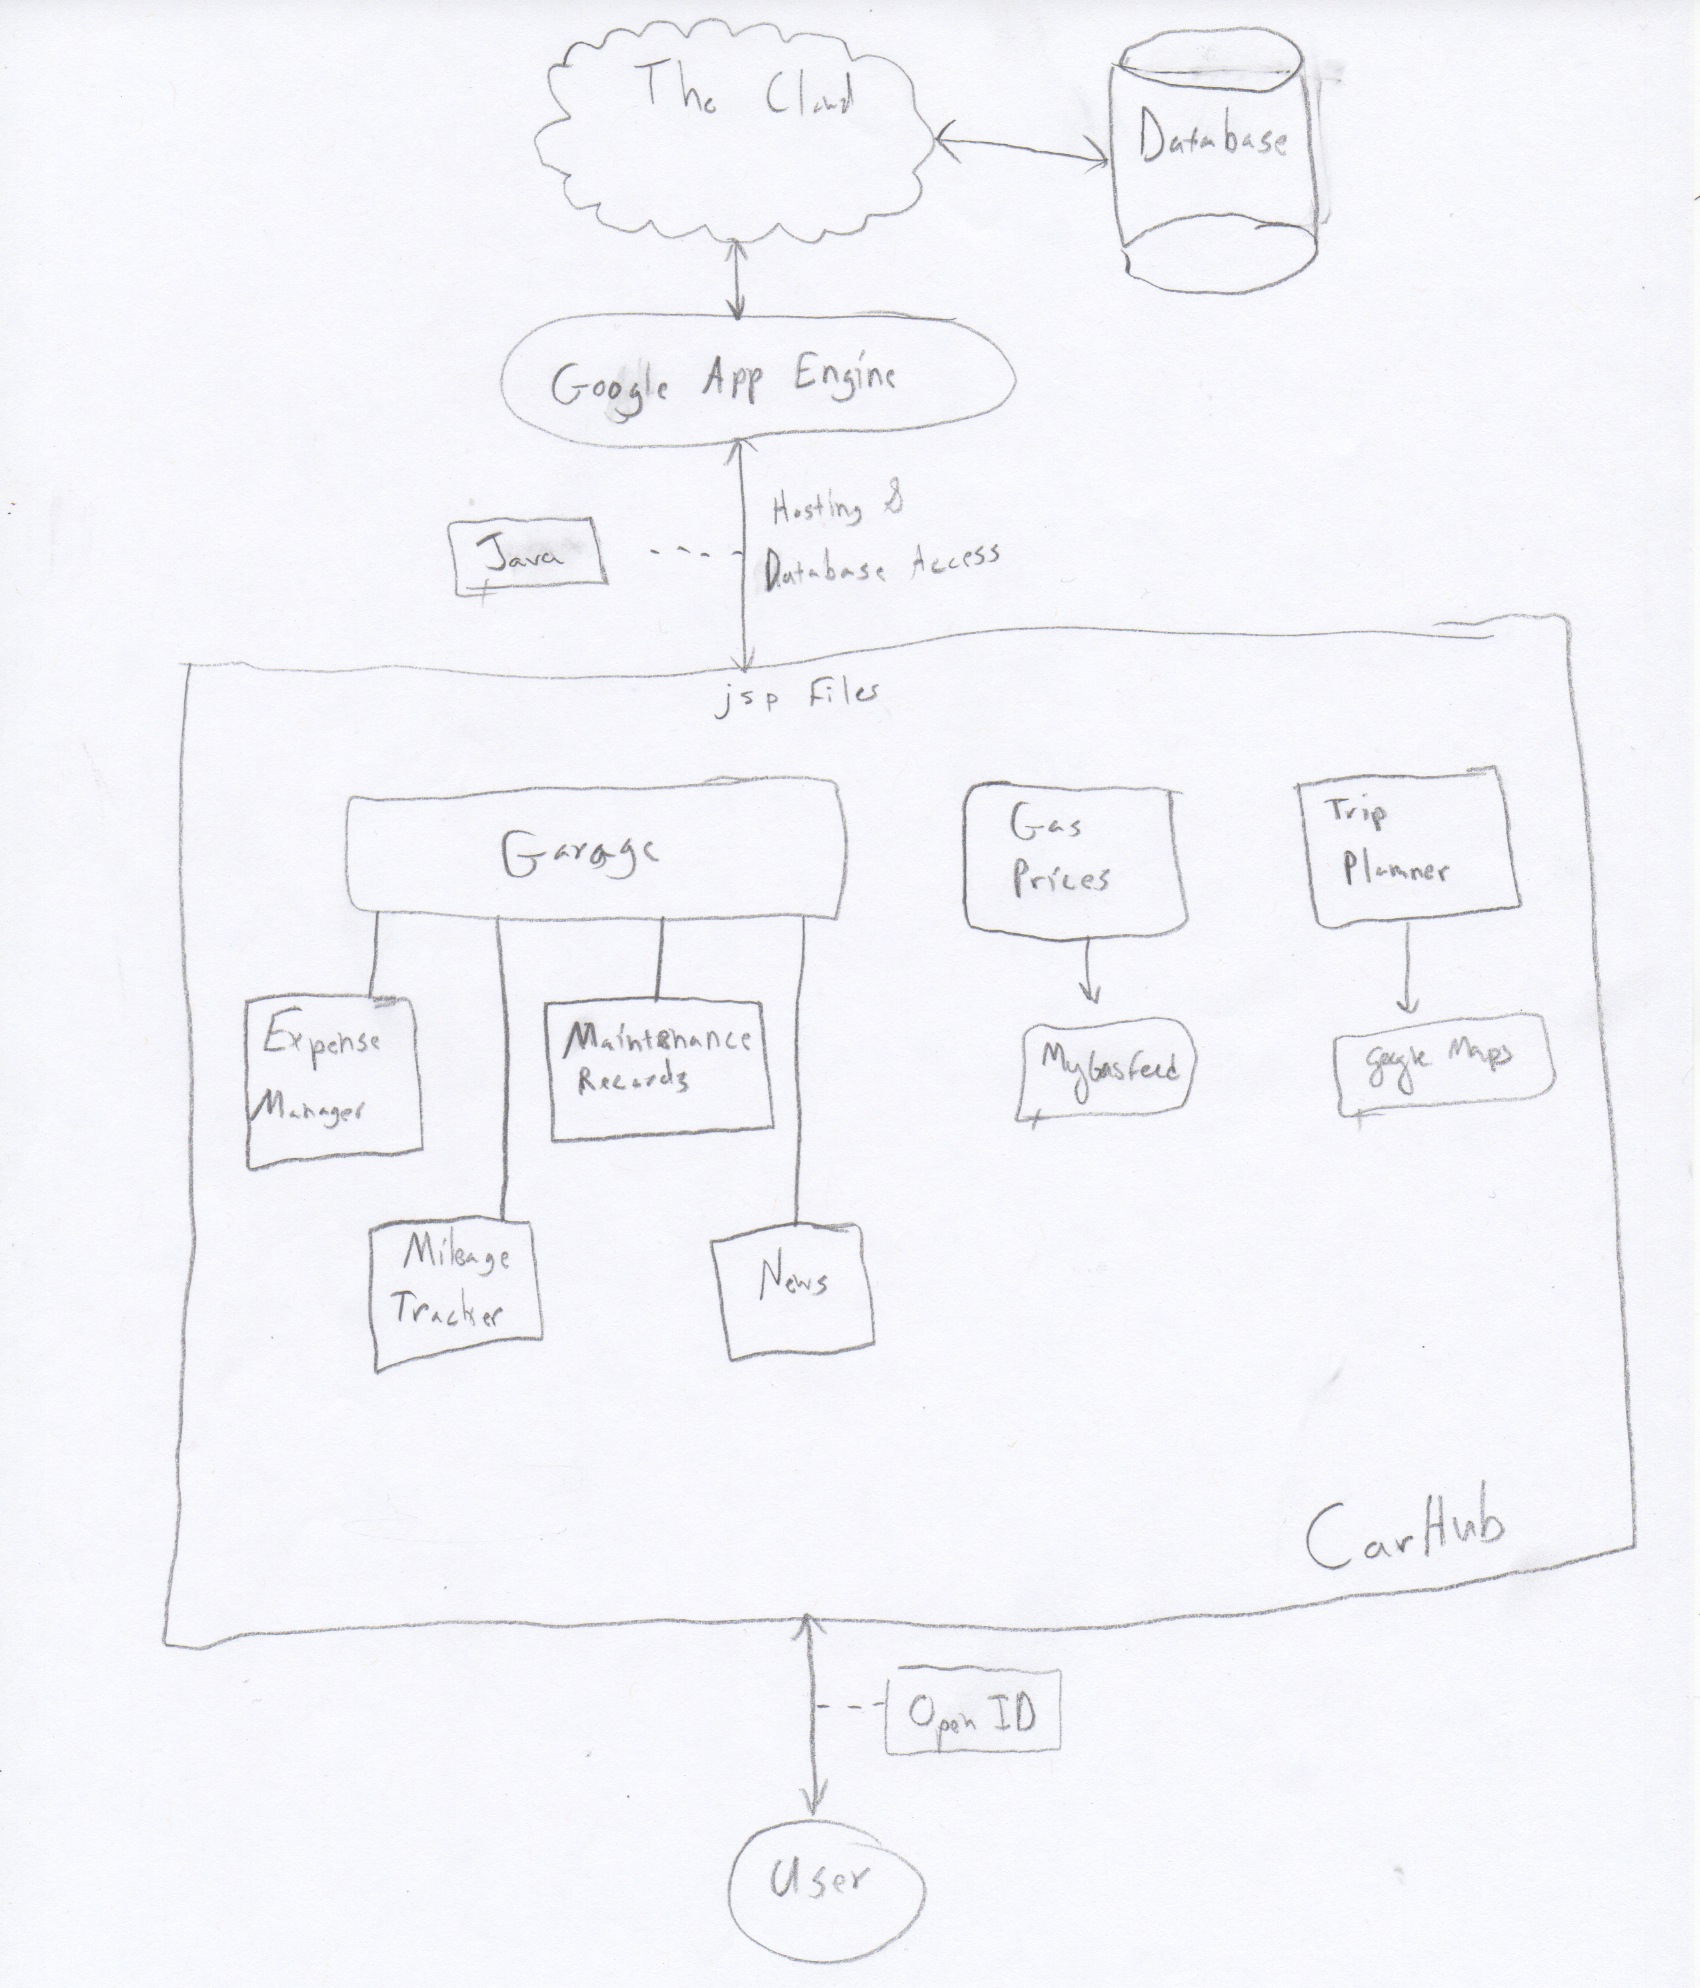 The Cloud
Database
Google App Engine
Java
Hosting &
Database Access
jsp Files
Garage
Gas
Prices
Trip
Planner
Expense
Manager
Maintenance
Records
MyGasFeed
google Maps
Mileage
Tracker
News
CarHub
Open ID
User